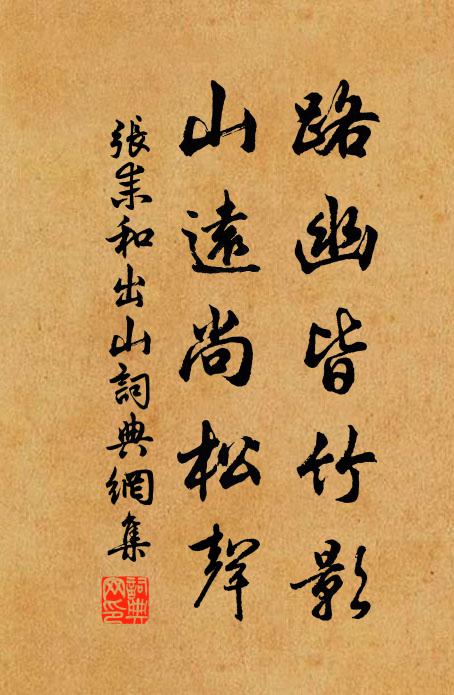 路幽皆竹影
山遠尚松聲
張耒和出山詞典網集
詞典
网印